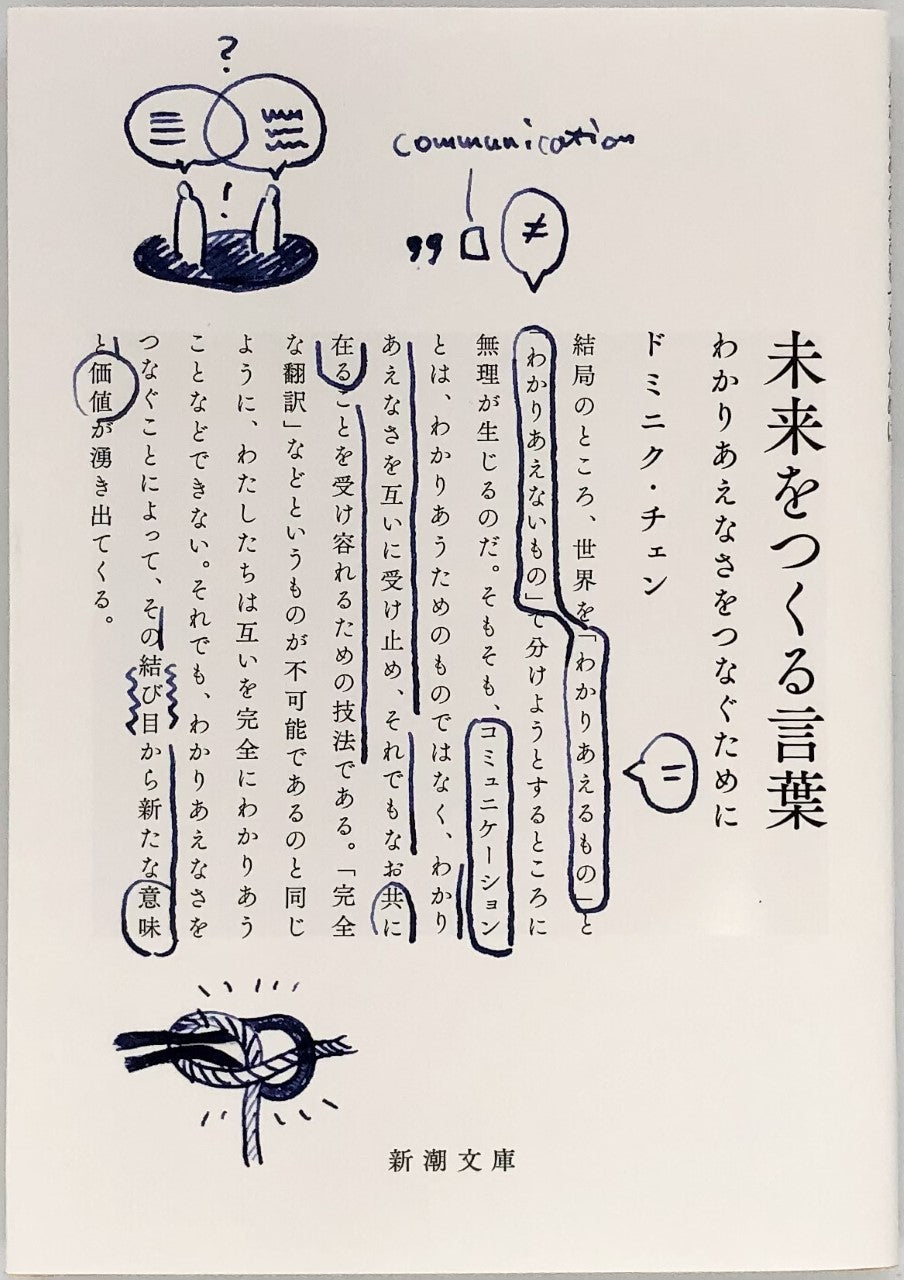 ?
communication
!
≠
未来をつくる言葉
わかりあえなさをつなぐために
ドミニク・チェン
=
結局のところ、世界を「わかりあえるもの」と
「わかりあえないもの」で分けようとするところに
無理が生じるのだ。そもそも、コミュニケーション
とは、わかりあうためのものではなく、わかり
あえなさを互いに受け止め、それでもなお共に
在ることを受け容れるための技法である。「完全
な翻訳」などというものが不可能であるのと同じ
ように、わたしたちは互いを完全にわかりあう
ことなどできない。それでも、わかりあえなさを
つなぐことによって、その結び目から新たな意味
と価値が湧き出てくる。
新潮文庫